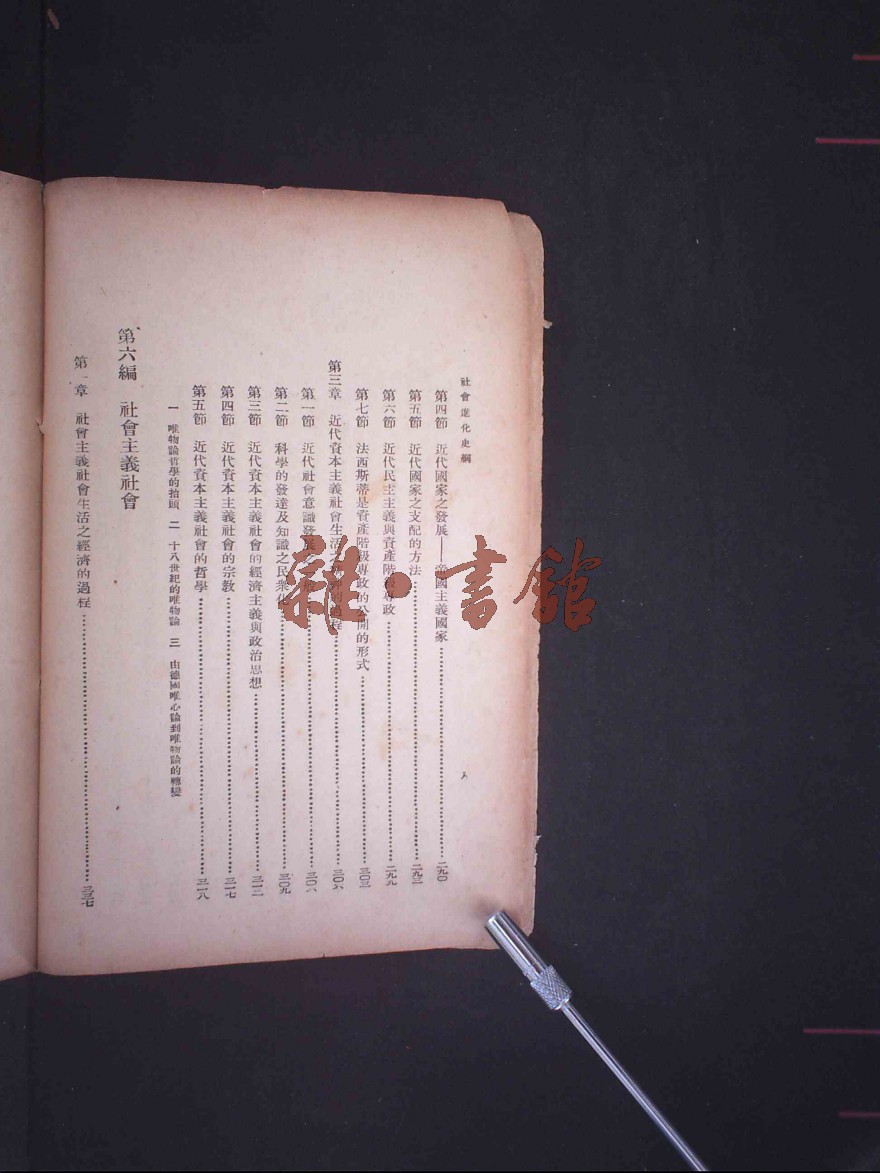 社會進化史綱
八
第四節　近代國家之發展——帝國主義國家……二九〇
第五節　近代國家之支配的方法……二九三
第六節　近代民主主義與資產階級專政……二九九
第七節　法西斯蒂是資產階級專政的公開的形式……三〇三
第三章　近代資本主義社會生活之　的過程……三〇六
第一節　近代社會意識發展……三〇六
第二節　科學的發達及知識之民衆化……三〇九
第三節　近代資本主義社會的經濟主義與政治思想……三一二
第四節　近代資本主義社會的宗教……三一七
第五節　近代資本主義社會的哲學……三一八
一　唯物論哲學的抬頭　二　十八世紀的唯物論　三　由德國唯心論到唯物論的轉變
第六編　社會主義社會
第一章　社會主義社會生活之經濟的過程……三三七
雜·書館